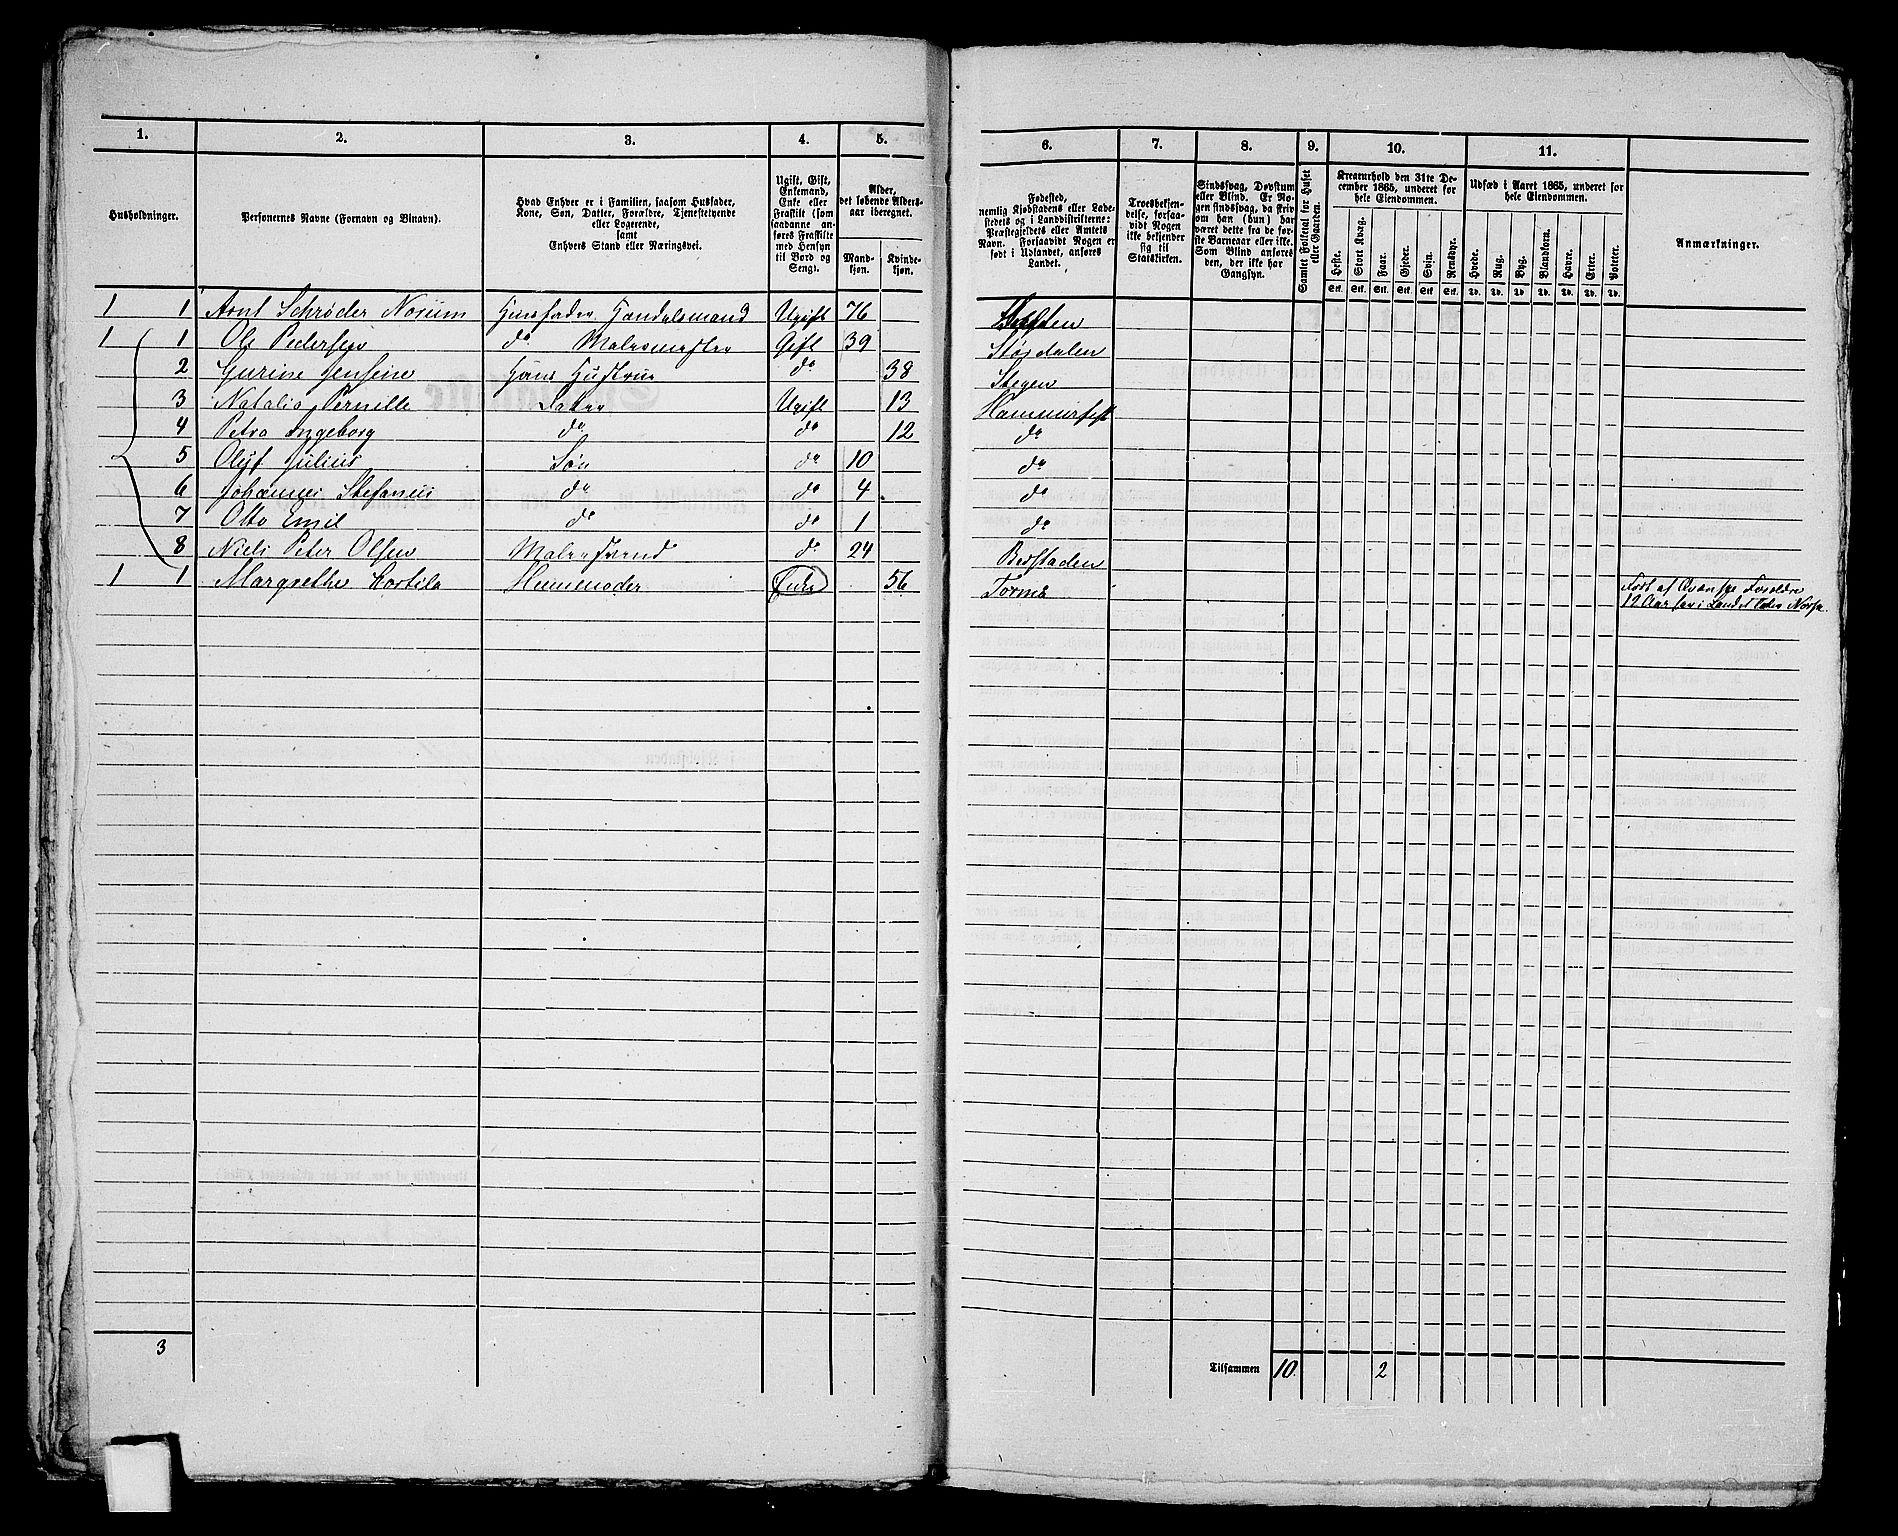 1. 2. 3. 4. 5. 6. 7. 8. 9. 10. 11.
Husholdninger.
Personernes Navne (Fornavn og Binavn).
Hvad Enhver er i Familien, saasom Husfader,
Kone, Søn, Datter, Forældre, Tjenestetyende
eller Logerende,
samt
Enhvers Stand eller Næringsvei.
Ugift, Gift,
Enkemand,
Enke eller
Fraskilt (som
saadanne an-
føres Fraskilte
med Hensyn
til Bord og
Seng).
Alder,
det løbende Alders-
aar iberegnet.
Mand-
kjøn.
Kvinde-
kjøn.
Fødested,
nemlig Kjøbstadens eller Lade-
stedets og i Landdistrikterne:
Præstegjeldets eller Amtets
Navn. Forsaavidt Nogen er
født i Udlandet, anføres
Landet.
Troesbekjen-
delse, forsaa-
vidt Nogen
ikke bekjender
sig til
Statskirken.
Sindssvag, Døvstum
eller Blind. Er No-
gen sindssvag, da skriv
om han (hun) har
været dette fra de før-
ste Barneaar eller ikke.
Som Blind anføres
den, der ikke har
Gangsyn.
Samlet Folketal for Huset
eller Gaarden.
Kreaturhold den 31te De-
cember 1865, underet for
hele Eiendommen.
Heste. Stort Kvæg. Faar. Gjeder. Svin. Rensdyr.
Stk. Stk. Stk. Stk. Stk. Stk.
Udsæd i Aaret 1865, underet for
hele Eiendommen.
Hvede. Rug. Byg. Blandkorn. Havre. Erter. Poteter.
Td. Td. Td. Td. Td. Td. Td.
Anmærkninger.
1 1 Arnt Schrøder Norum Huusfader Handelsmand Ugift 76
1 1 Ole Pedersen do Malermester Gift 39 Størdalen
2 Gurine Jensine Hans Hustrue do 38 Stegen
3 Natalie Pernille Datter Ugift 13 Hammerfest
4 Petra Ingeborg do do 12 do
5 Oluf Julius Søn do 10 do
6 Johannes Stefanus do do 4 do
7 Otto Emil do do 1 do
8 Niels Peter Olsen Malersvend do 24 Bedstaden
1 1 Margrethe Huusmoder Enke 56 Torneå Født af Qvænske Forældre
12 Aar i Landet
3
Tilsammen 10 2